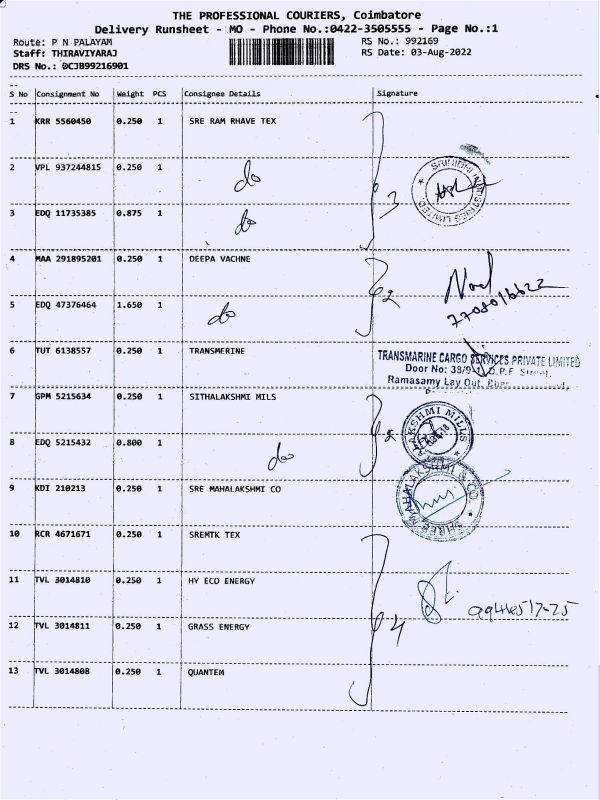 THE PROFESSIONAL COURIERS, Coimbatore
Delivery Runsheet - MO - Phone No.:0422-3505555 - Page No.:1
Route: P N PALAYAM RS No.: 992169
Staff: THIRAVIYARAJ RS Date: 03-Aug-2022
DRS No.: 0CJB99216901
S No Consignment No Weight PCS Consignee Details Signature
1 KRR 5560450 0.250 1 SRE RAM RHAVE TEX
2 VPL 937244815 0.250 1 do
SRINIDHI INDUSTRIES LIMITED
3 EDQ 11735385 0.875 1 do 3
4 MAA 291895201 0.250 1 DEEPA VACHNE 2
5 EDQ 47376464 1.650 1 do
6 TUT 6138557 0.250 1 TRANSMERINE
TRANSMARINE CARGO SERVICES PRIVATE LIMITED
Door No: 38/9-1, D.P.F Street,
Ramasamy Lay Out,
7 GPM 5215634 0.250 1 SITHALAKSHMI MILS
2
MILLS
8 EDQ 5215432 0.800 1 do
9 KDI 210213 0.250 1 SRE MAHALAKSHMI CO
SHREE MAHALAKSHMI & CO.
10 RCR 4671671 0.250 1 SREMTK TEX
11 TVL 3014810 0.250 1 HY ECO ENERGY
12 TVL 3014811 0.250 1 GRASS ENERGY 4
13 TVL 3014808 0.250 1 QUANTEM